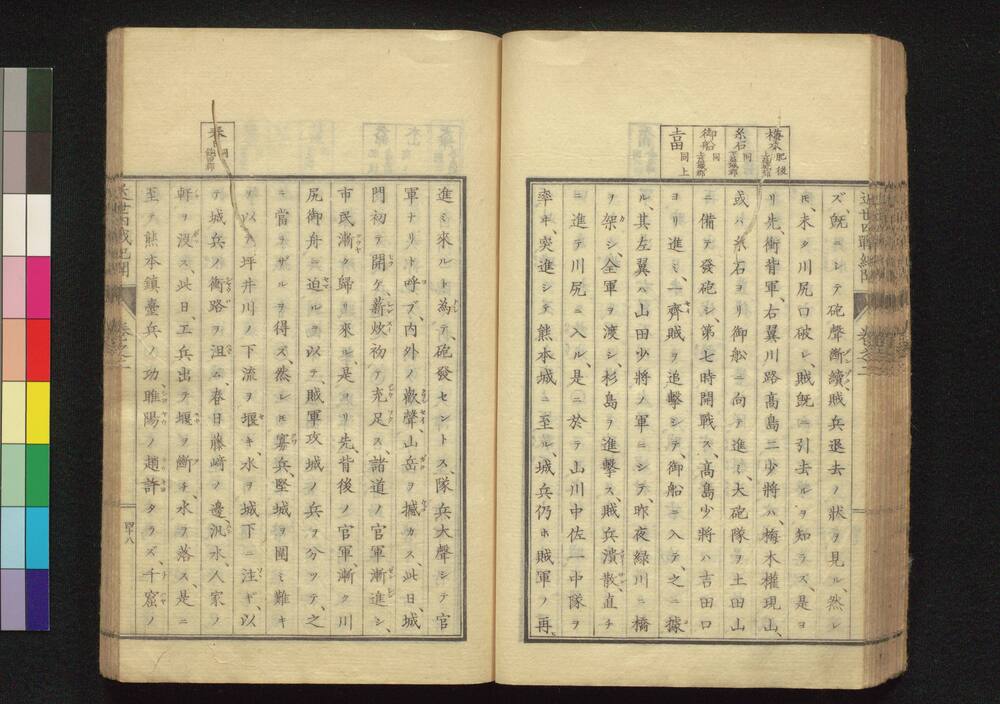 ズ、既ニシテ砲聲斷續、賊兵退去ノ狀ヲ見ル、然レ
ドモ、未タ川尻口破レ、賊既ニ引去ルヲ知ラズ、是ヨ
リ先、衝背軍、右翼川路高島二少將ハ、梅木權現山、
或ハ糸石ヨリ御船ニ向テ進ミ、大砲隊ヲ土田山
ニ備テ發砲シ、第七時開戰ス、高島少將ハ吉田口
ヨリ進ミ、一齊賊ヲ追擊シテ、御船ニ入テ、之ニ據
ル、其左翼ハ山田少將ノ軍ニシテ、昨夜綠川ニ橋
ヲ架シ、全軍ヲ渡シ、杉島ヲ進擊ス、賊兵潰散、直チ
ニ進テ川尻ニ入ル、是ニ於テ山川中佐一中隊ヲ
率ヰ、突進シテ熊本城ニ至ル、城兵仍ホ賊軍ノ再
肥後
糸石 同
御船 同
同上
進ミ來ルト為テ、砲發セントス、隊兵大聲シテ官
軍ナリト呼ブ、內外ノ歡聲、山岳ヲ撼カス、此日、城
門初テ開ケ、薪炊初テ充足ス、諸道ノ官軍漸進シ、
市民漸ク歸リ來ル、是ヨリ先、背後ノ官軍、漸ク川
尻御舟ニ迫ルヲ以テ、賊軍攻城ノ兵ヲ分ツテ、之
ニ當ラザルヲ得ズ、然レモ寡兵、堅城ヲ圍ミ難キ
ヲ以テ、坪井川ノ下流ヲ堰キ、水ヲ城下ニ注ギ、以
テ城兵ノ衝路ヲ沮ム、春日藤崎ノ邊汎水、人家ノ
軒ヲ沒ス、此日、工兵出テ堰ヲ斷チ、水ヲ落ス、是ニ
至テ熊本鎮臺兵ノ功、睢陽ノ趙許タラズ、千窟ノ
卷之二
四十八